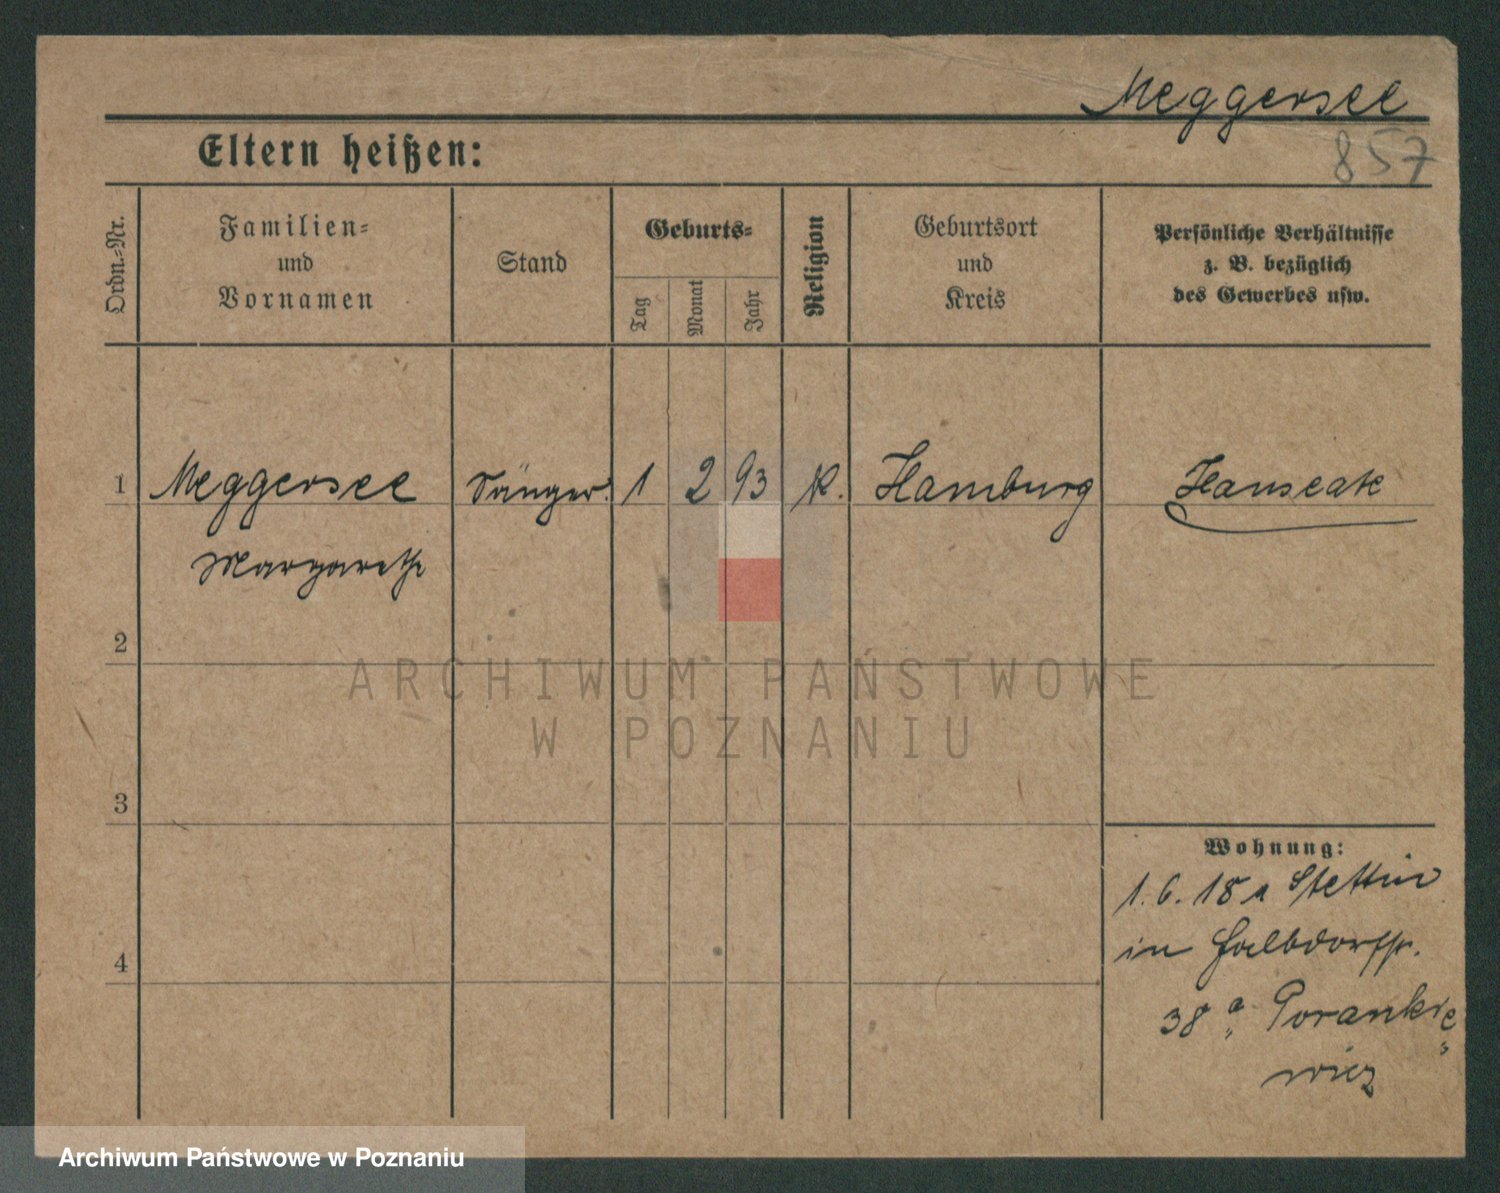 Meggersee
857
Eltern heißen:
Ordn.-Nr.
Familien-
und
Vornamen
Stand
Geburts-
Tag
Monat
Jahr
Religion
Geburtsort
und
Kreis
Persönliche Verhältnisse
z. B. bezüglich
des Gewerbes usw.
1 Meggersee Sänger. 1 2 93 K. Hamburg Hanseate
Margarethe
2
ARCHIWUM PAŃSTWOWE
W POZNANIU
3
Wohnung:
1. 6. 18 a Stettin
4
in Halbdorfstr.
38 a Porankie
wicz
Archiwum Państwowe w Poznaniu